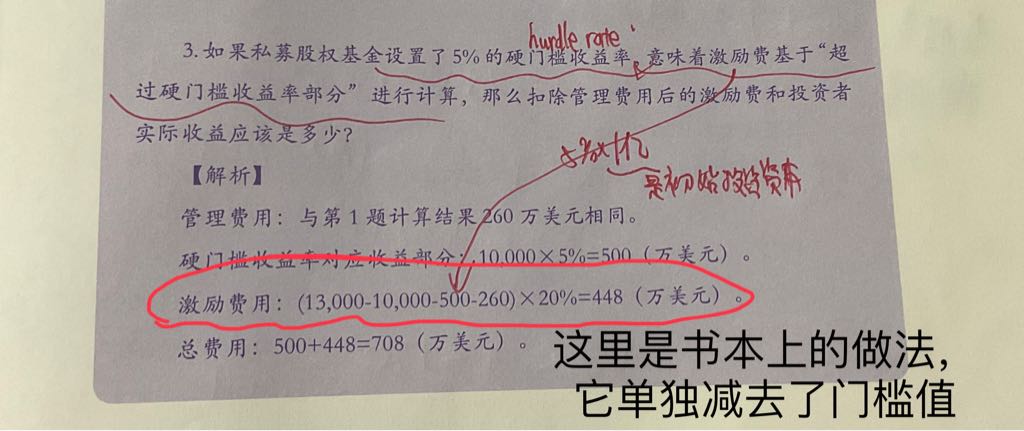 hurdle rate
3.如果私募股权基金设置了5%的硬门槛收益率，意味着激励费基于“超
过硬门槛收益率部分”进行计算，那么扣除管理费用后的激励费和投资者
实际收益应该是多少？
5%×1亿
是初始投资资本
【解析】
管理费用：与第1题计算结果260万美元相同。
硬门槛收益率对应收益部分：10,000×5%=500（万美元）。
激励费用：(13,000-10,000-500-260)×20%=448（万美元）。
总费用：500+448=708（万美元）。
这里是书本上的做法，
它单独减去了门槛值